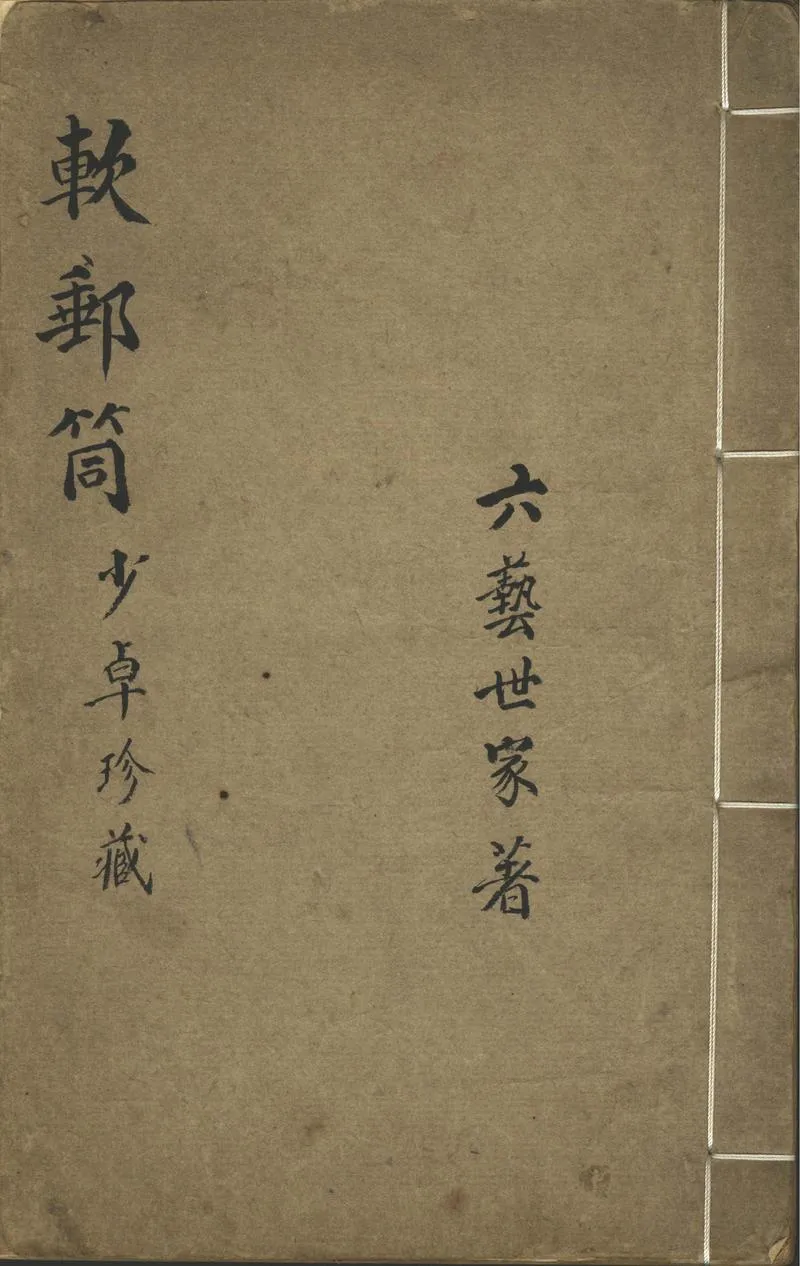 六藝世家著
軟郵筒
少卓珍藏